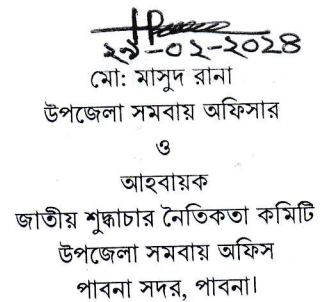 ২৯-০২-২০২৪
মো: মাসুদ রানা
উপজেলা সমবায় অফিসার
ও
আহবায়ক
জাতীয় শুদ্ধাচার নৈতিকতা কমিটি
উপজেলা সমবায় অফিস
পাবনা সদর, পাবনা।